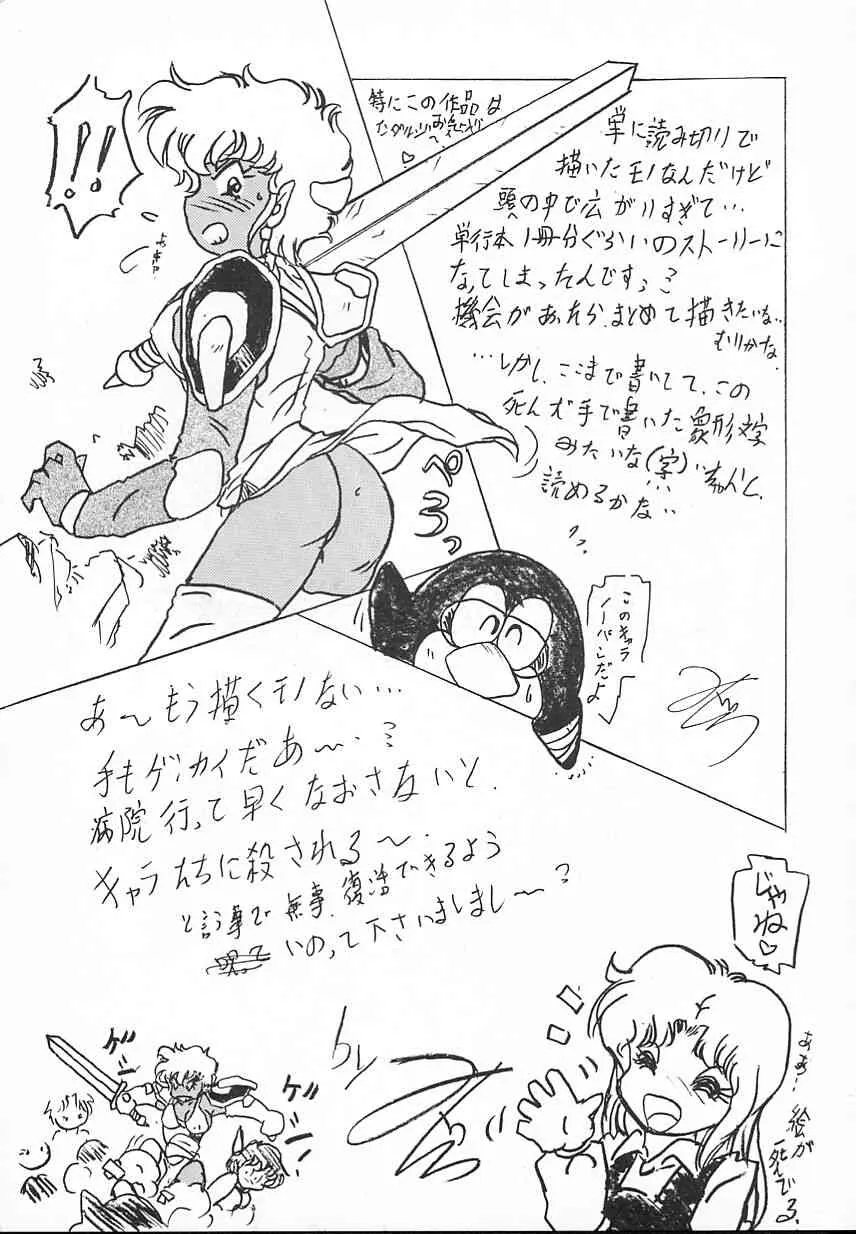 !!
特にこの作品は
お気に入り
♡
単に読み切りで
描いたモノなんだけど
頭の中で広がりすぎて…
単行本1冊分ぐらいのストーリーに
なってしまったんです
機会があったら、まとめて描きたいな…
むりかな
…しかし、ここまで書いてて、この
死んだ手で書いた象形文字
みたいな(字)、ちゃんと
読めるかな…
ぺろっ
このキャラ
ノーパンだよ
あ〜もう描くモノない…
手もゲンカイだあ〜…
病院行って早くなおさないと、
キャラたちに殺される〜
と言う事で無事、復活できるよう
いのって下さいましまし〜
じゃね♡
ああ… 絵が
死んでる
by
ゲシ
ゲシ